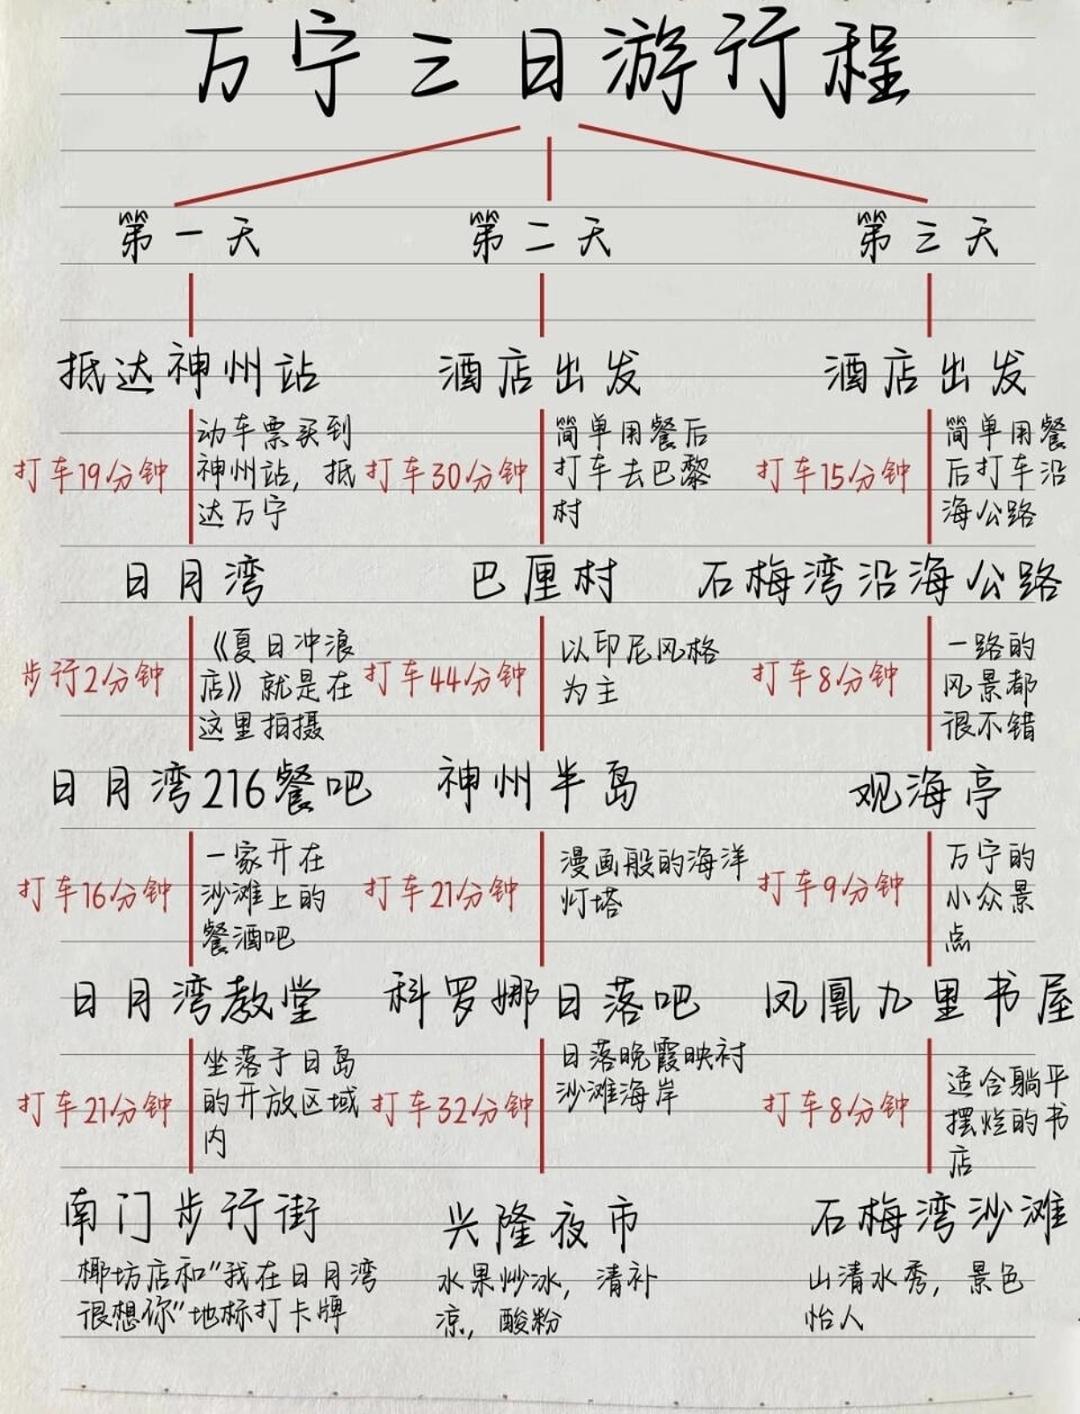 万宁三日游行程
第一天
抵达神州站
打车19分钟
动车票买到
神州站，抵
达万宁
日月湾
步行2分钟
《夏日冲浪
店》就是在
这里拍摄
日月湾216餐吧
打车16分钟
一家开在
沙滩上的
餐酒吧
日月湾教堂
打车21分钟
坐落于日岛
的开放区域
内
南门步行街
椰坊店和"我在日月湾
很想你"地标打卡牌
第二天
酒店出发
打车30分钟
简单用餐后
打车去巴黎
村
巴厘村
打车44分钟
以印尼风格
为主
神州半岛
打车21分钟
漫画般的海洋
灯塔
科罗娜日落吧
打车32分钟
日落晚霞映衬
沙滩海岸
兴隆夜市
水果炒冰，清补
凉，酸粉
第三天
酒店出发
打车15分钟
简单用餐
后打车沿
海公路
石梅湾沿海公路
打车8分钟
一路的
风景都
很不错
观海亭
打车9分钟
万宁的
小众景
点
凤凰九里书屋
打车8分钟
适合躺平
摆烂的书
店
石梅湾沙滩
山清水秀，景色
怡人